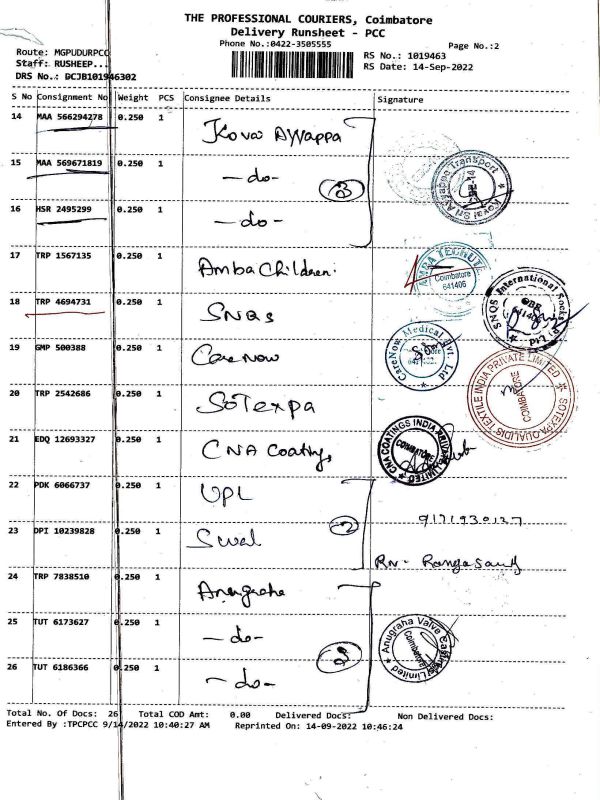 THE PROFESSIONAL COURIERS, Coimbatore
Delivery Runsheet - PCC
Phone No.:0422-3505555
Page No.:2
Route: MGPUDURPCC
Staff: RUSHEEP...
DRS No.: DCJB101946302
RS No.: 1019463
RS Date: 14-Sep-2022
S No Consignment No Weight PCS Consignee Details Signature
14 MAA 566294278 0.250 1 Kovai Ayyappa
15 MAA 569671819 0.250 1 -do- 3
16 HSR 2495299 0.250 1 -do-
Kovai Sri Ayyappa Transport
17 TRP 1567135 0.250 1 Amba Children.
AMBA Coimbatore 641406
18 TRP 4694731 0.250 1 SNQS
SNQS International Socks Ltd
19 GMP 500388 0.250 1 CareNow
CareNow Medical Pvt. Ltd
20 TRP 2542686 0.250 1 SoTexpa
SOTEXPA QUALIDIS TEXTILE INDIA PRIVATE LIMITED COIMBATORE
21 EDQ 12693327 0.250 1 CNA Coatings
CNA COATINGS INDIA PRIVATE LIMITED COIMBATORE
22 PDK 6066737 0.250 1 UPL
23 DPI 10239828 0.250 1 Swal 2
24 TRP 7838510 0.250 1 Anugraha
25 TUT 6173627 0.250 1 -do-
26 TUT 6186366 0.250 1 -do- 3
Anugraha Valve Castings Limited Coimbatore
Total No. Of Docs: 26 Total COD Amt: 0.00 Delivered Docs: Non Delivered Docs:
Entered By :TPCPCC 9/14/2022 10:40:27 AM Reprinted On: 14-09-2022 10:46:24